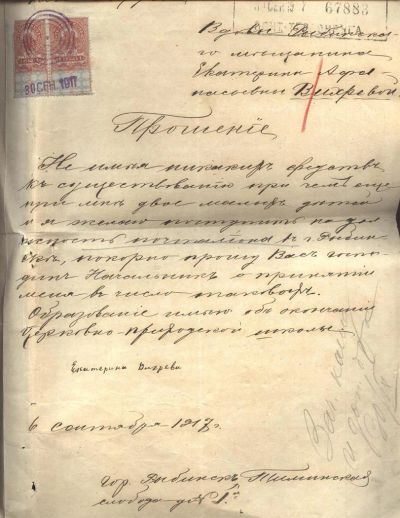 67883
8 СЕН. 1917
Вдовы Рыбинска-
го мещанина
Екатерины Афа-
насьевны Вихревой.
Прошеніе
Не имѣя никакихъ средствъ
къ существованію при чемъ еще
при мнѣ двое малыхъ дѣтей
и я желаю поступить на дол
жность почталіона въ г. Рыбин-
скѣ, покорно прошу Васъ госпо
динъ Начальникъ о принятіи
меня въ число таковыхъ.
Образованіе имѣю объ окончаніи
Церковно-приходской школы
Екатерина Вихрева
6 сентября 1917 г.
гор. Рыбинскъ
слобода д. № 1.й